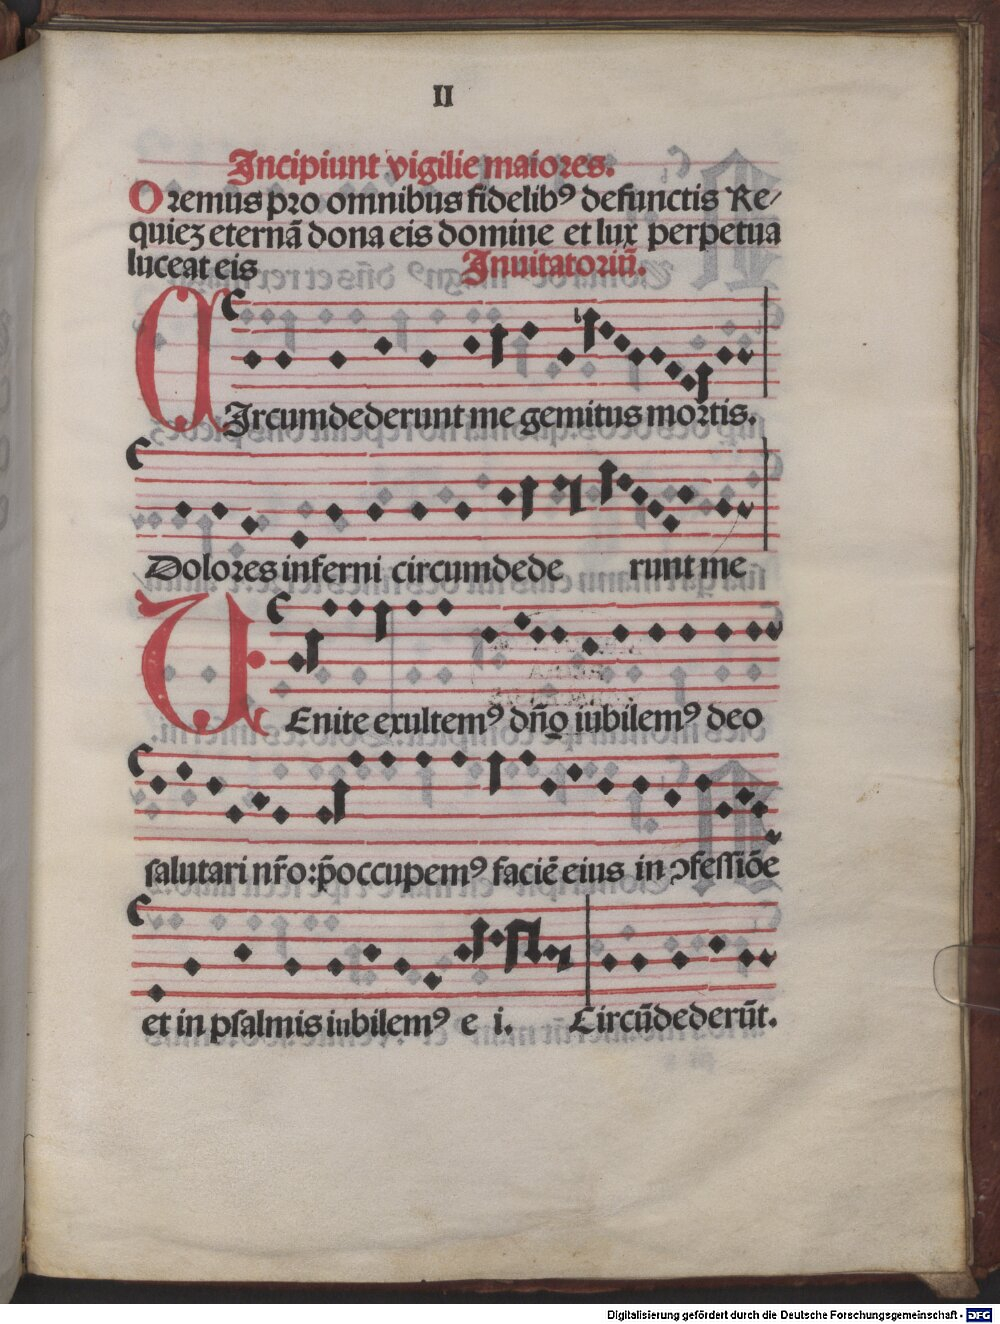 II
Incipiunt vigilie maiores.
Oremus pro omnibus fidelibꝰ defunctis Re⸗
quiez eternā dona eis domine et lux perpetua
luceat eis Inuitatoriū.
CIrcumdederunt me gemitus mortis.
Dolores inferni circumdede runt me
VEnite exultemꝰ dn̄o iubilemꝰ deo
salutari nr̄o: p̄occupemꝰ faciē eius in ꝯfessiōe
et in psalmis iubilemꝰ e i. Circūdederūt.
Digitalisierung gefördert durch die Deutsche Forschungsgemeinschaft - DFG